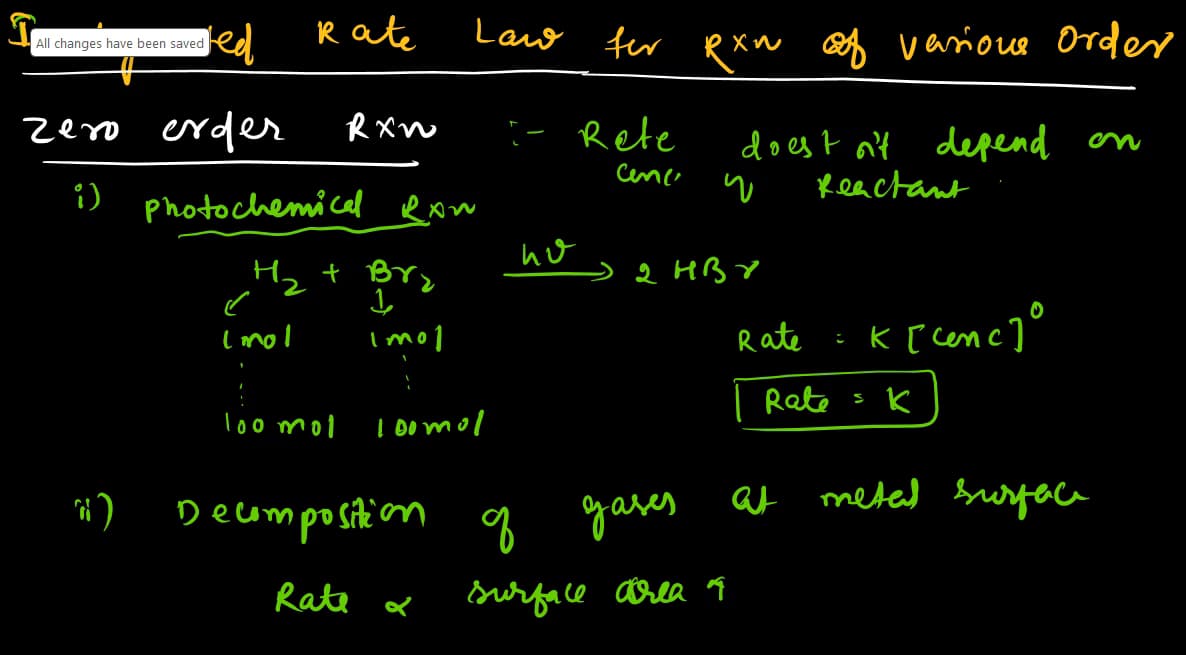 I
All changes have been saved
ed Rate Law for Rxn of various Order
Zero order Rxn :- Rate doest n't depend on
conc. of Reactant.
i) photochemical Rxn
H₂ + Br₂ hν → 2 HBr
1 mol 1 mol
Rate = K [conc]⁰
Rate = K
100 mol 100 mol
ii) Decomposition of gases at metal surface
Rate ∝ surface area ↑